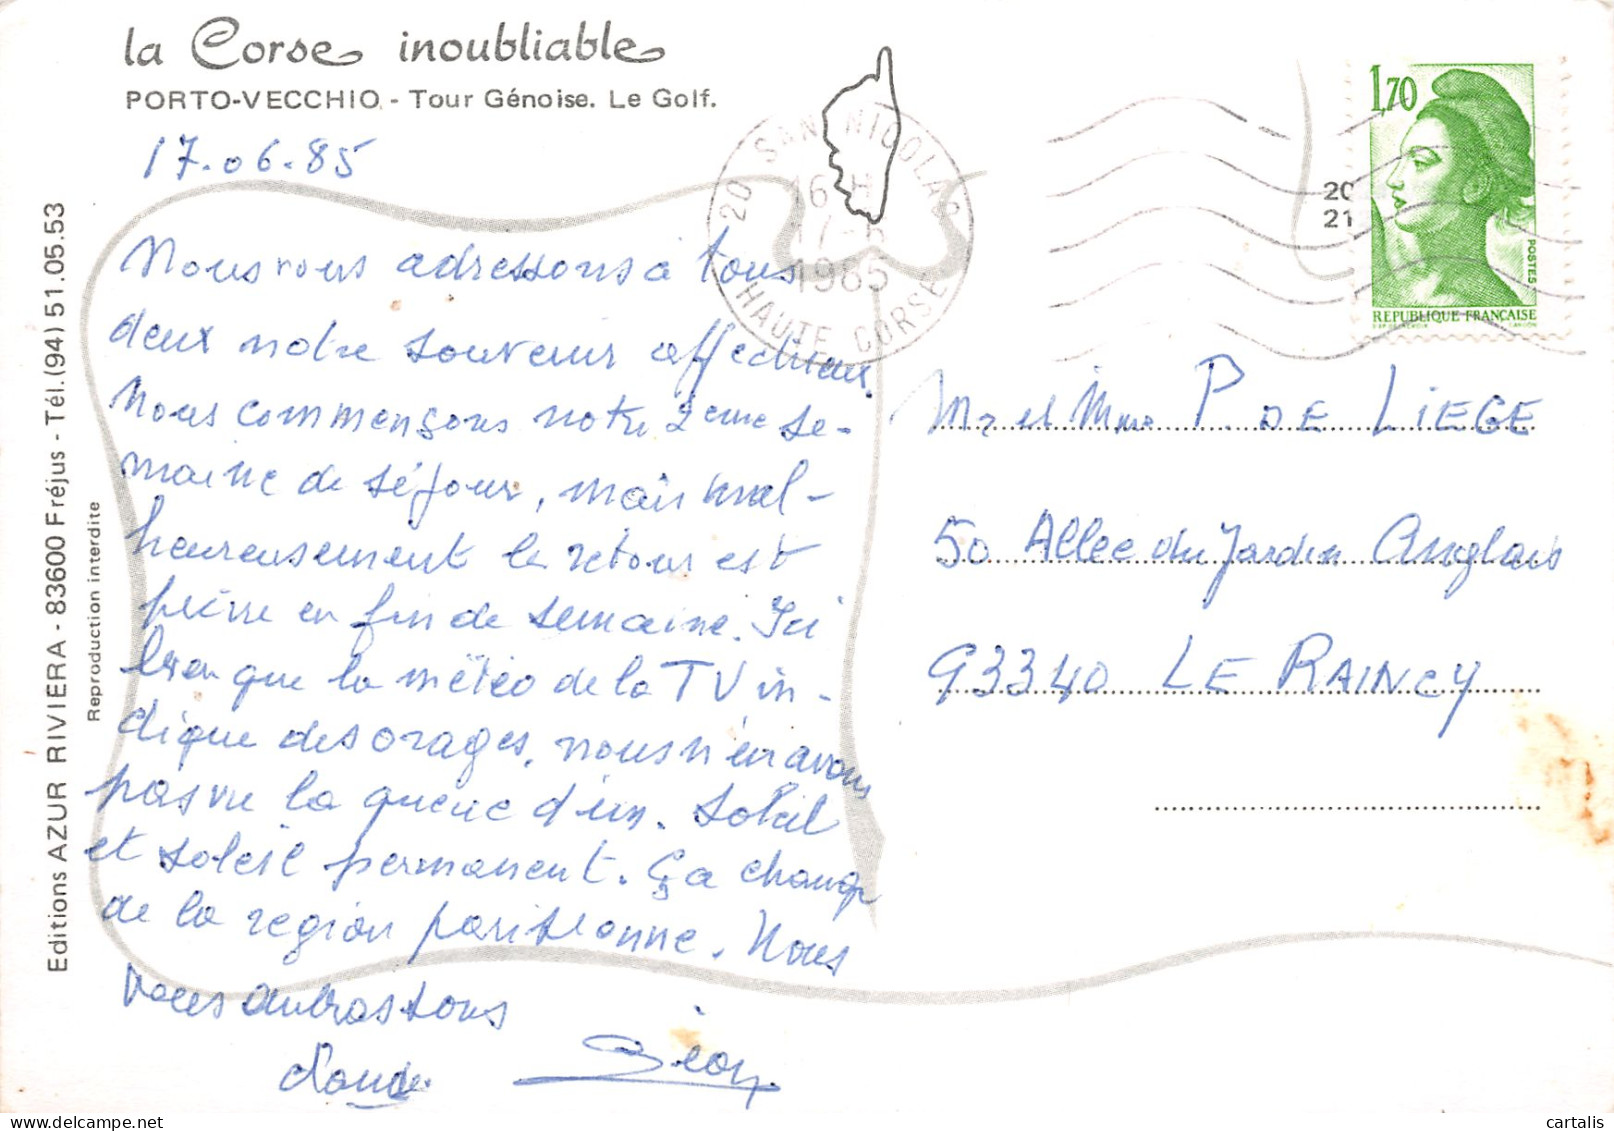 la Corse inoubliable
PORTO-VECCHIO. - Tour Génoise. Le Golf.
17.06.85
Nous vous adressons a tous
deux notre souvenir affectueux.
Nous commençons notre 2eme se-
maine de séjour, mais mal-
heureusement le retour est
prévu en fin de semaine. Ici
bien que la météo de la TV in-
dique des orages, nous n'en avons
pas vu la queue d'un. Soleil
et soleil permanent. Ça change
de la region parisienne. Nous
vous embrassons
Editions AZUR RIVIERA - 83600 Fréjus - Tél. (94) 51.05.53
Reproduction interdite
20 SAN NICOLAS
16 H
17-6
1985
HAUTE CORSE
20
21
1,70
POSTES
REPUBLIQUE FRANÇAISE
Mr et Mme P. DE LIEGE
50 Allee du Jardin Anglais
93340 LE RAINCY
cartalis